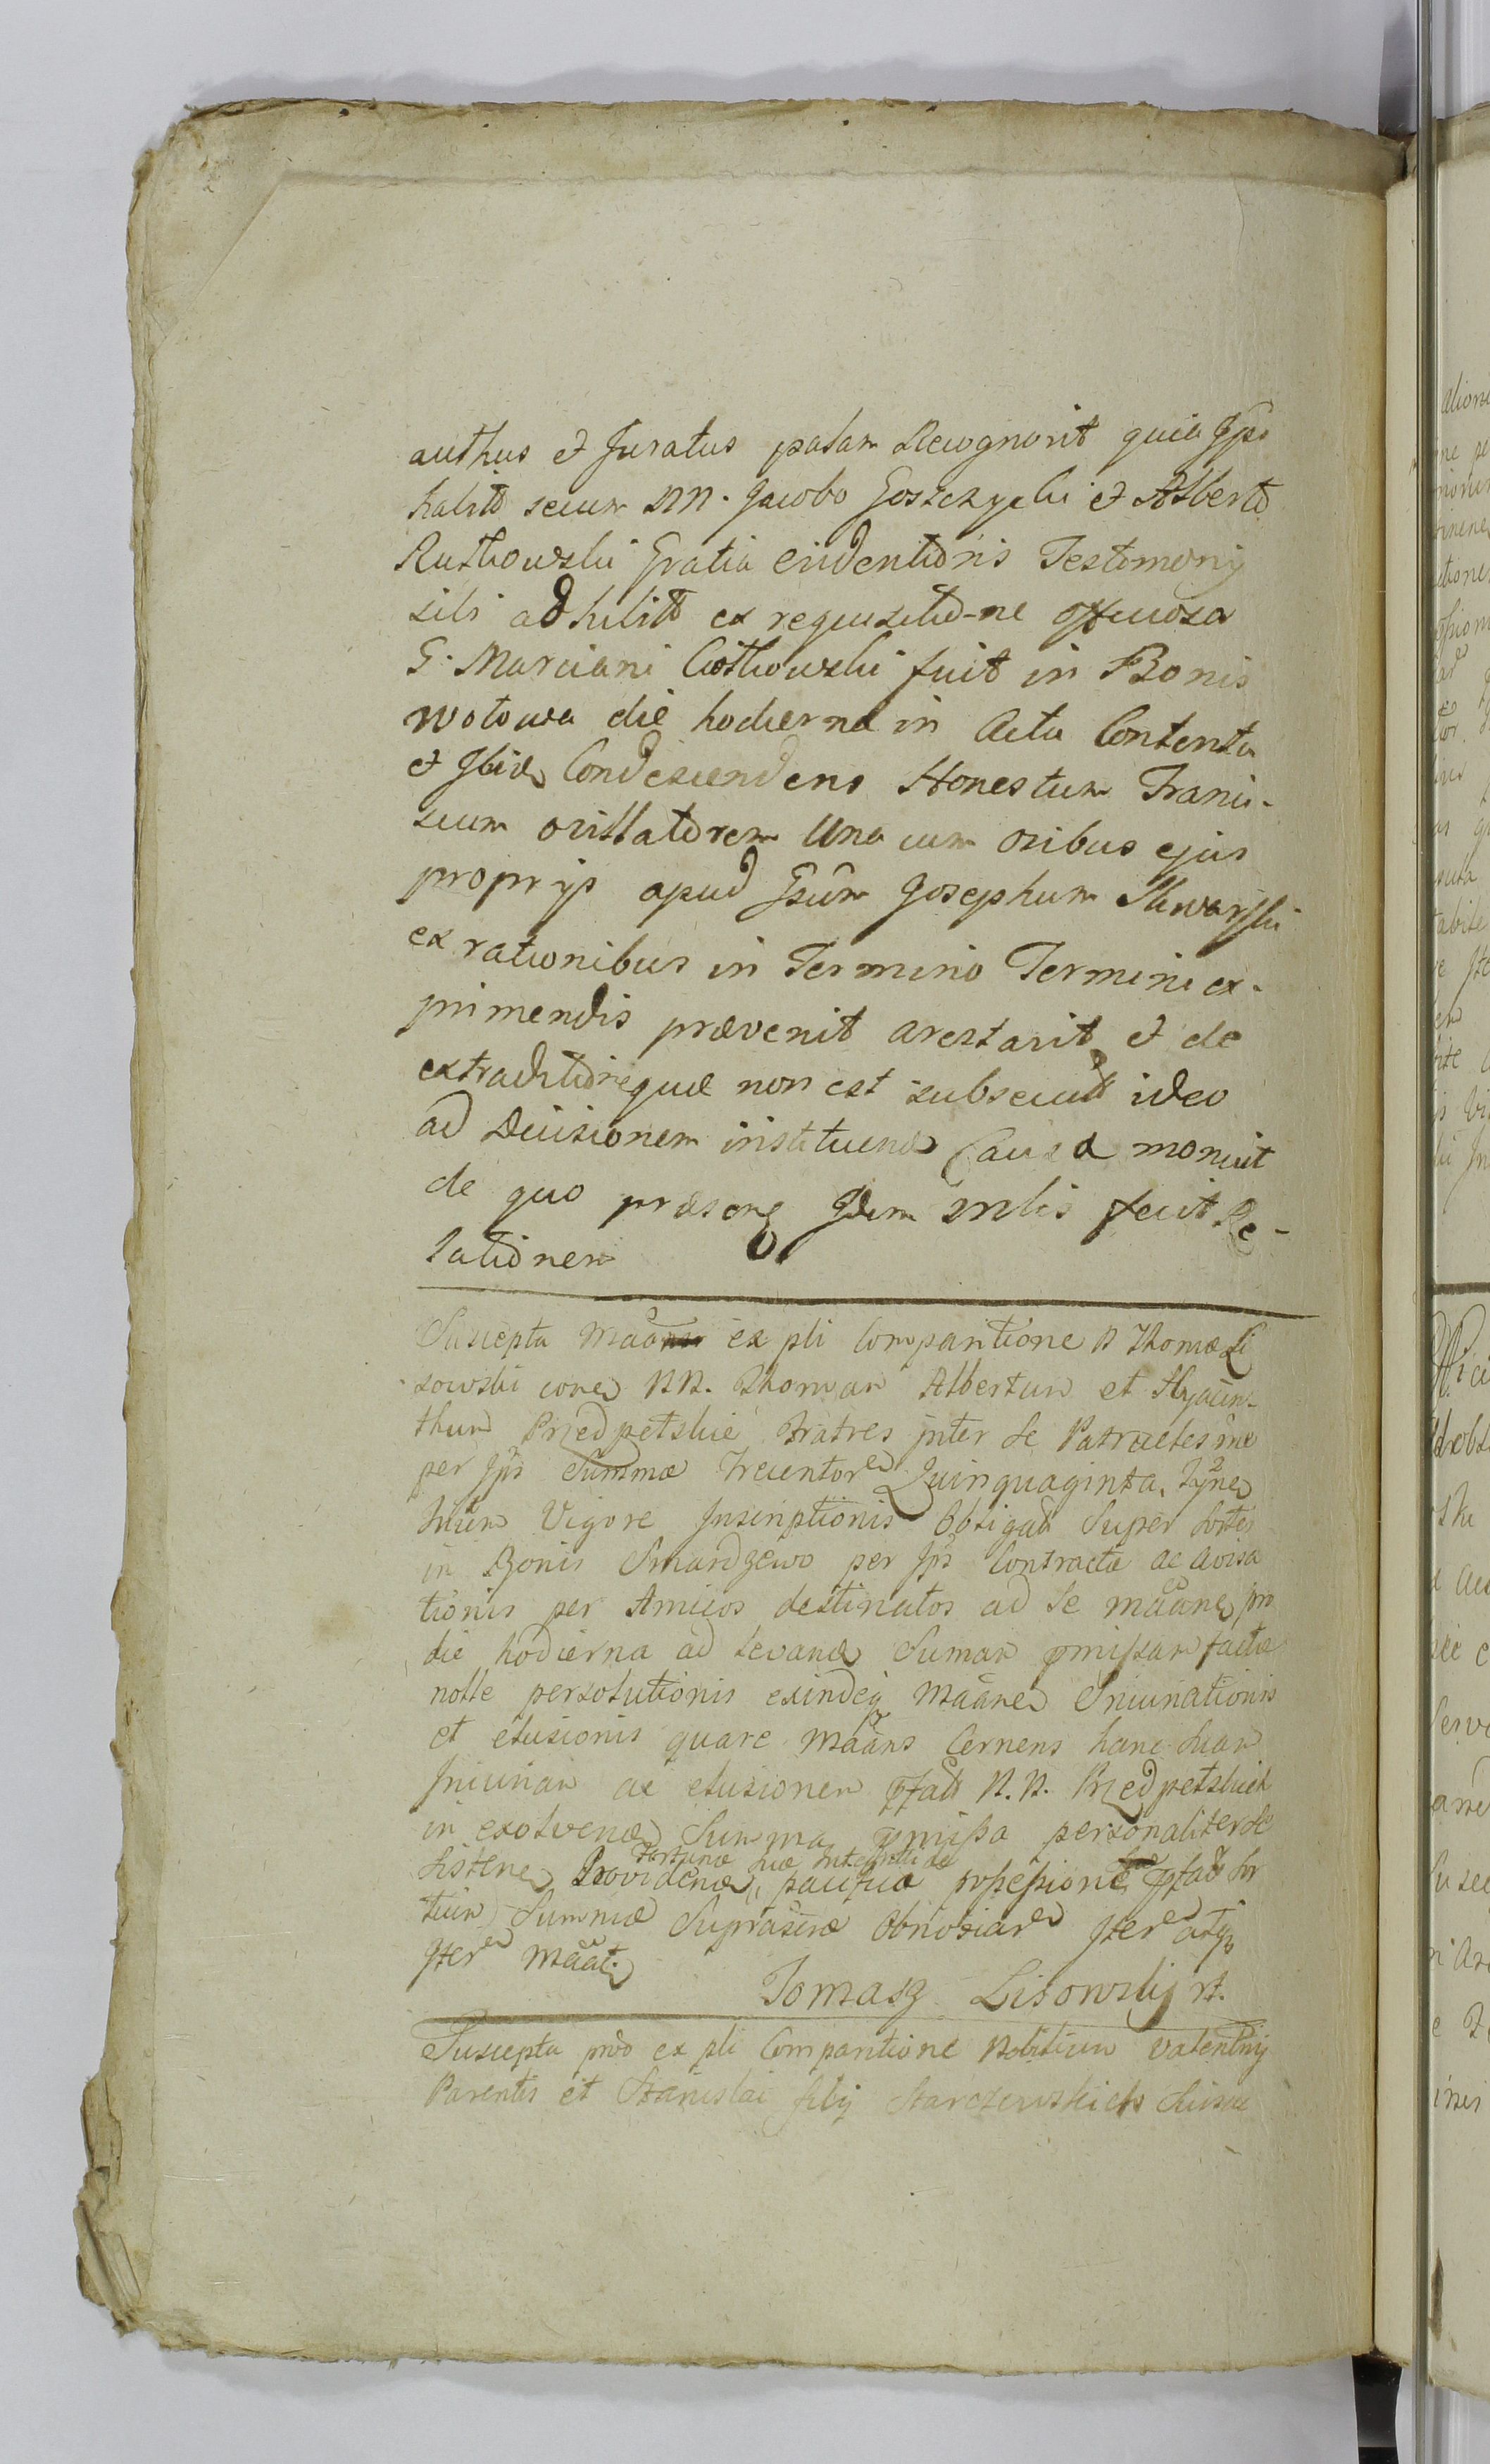 authus et Juratus palam Recognovit quia Ips
habitō secum NN. Jacobo Goszczycki et Alberto
Rutkowski Gratia evidentioris Testimonij
sibi adhibitt ex requisitio-ne officiosa
G. Marciani Ciotkowski fuit in Bonis
Wotowa die hodierna in Actu Contenta
et Ibid Condescendens Honestum Francis-
cum ovillatorem Una cum ovibus ejus
proprijs apud Gsum Josephum
ex rationibus in Termino Termini ex-
primendis prævenit arestavit et de
extraditione quæ non est subsecuta ideo
ad Decisionem instituend Causa monuit
de quo præsens Idem Mlis fecit Re-
lationem
Suscepta ex pli Comparitione N Thomæ Li
sowski NN. Thomam Albertum et Hyacin-
thum Przedpetskie Fratres inter se Patrueles
per Ips Summæ Trecentor Quinquaginta
Vigore Inscriptionis Obligat Super Sortes
in Bonis Smardzewo per Ips Contractæ ac avisa
tionis per Amicos destinatos ad se pro
die hodierna ad levand Sumam pmissam factæ
nolle persolutionis exindeq Iniuriationis
et elusionis quare Cernens hanc suam
Iniuriam ac elusionem N.N. Przedpetskich
in exolvend Summa pmissa personaliter se
Fortunæ suæ
sisten Providend pacifica possessione
Summæ Suprascræ Obnoxiar Iter atq
Iter
Tomasz Lisowskij
Suscepta ex pli Comparitione Nobilium Valentinij
Parentis et Stanislai filij Starczewskich